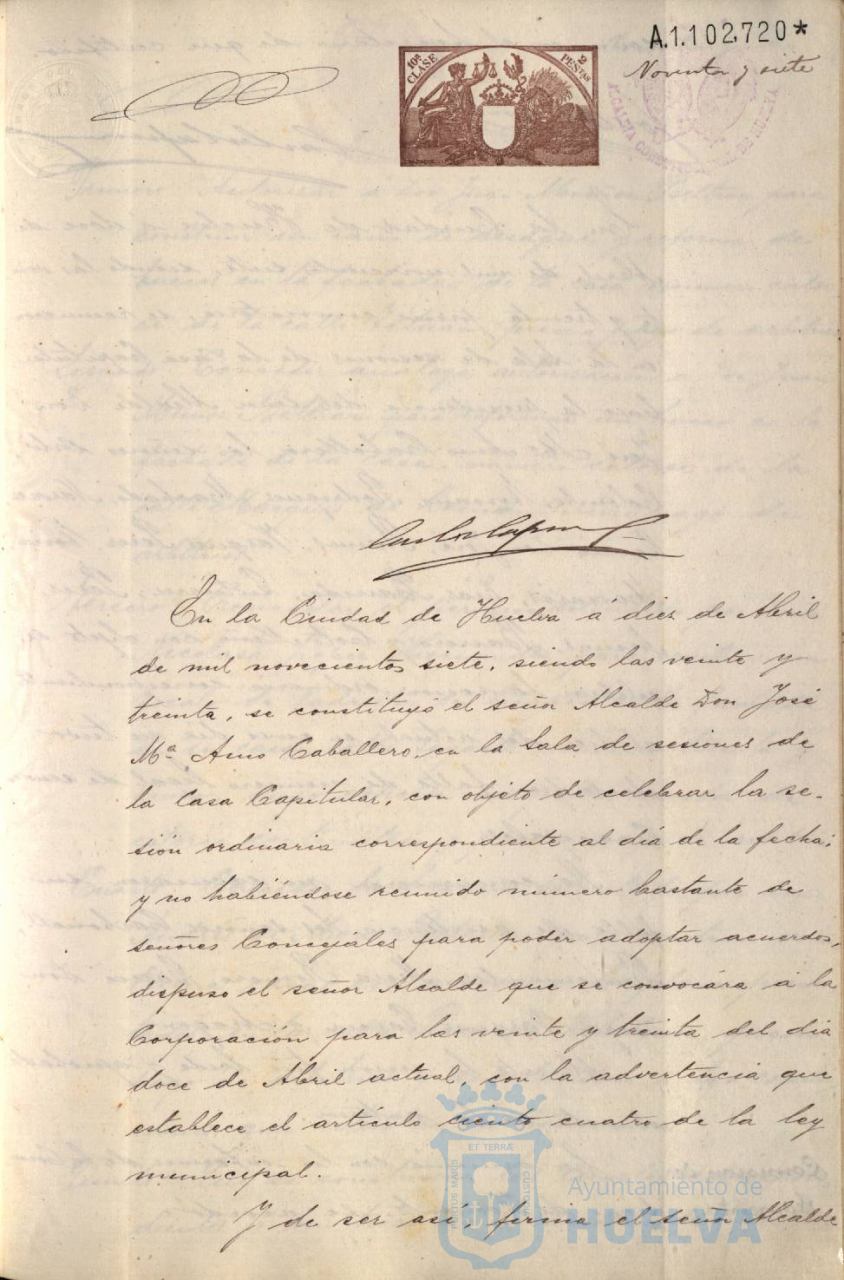 A.1.102,720*
Noventa y siete
10ª CLASE
2 PESETAS
En la Ciudad de Huelva á diez de Abril
de mil novecientos siete, siendo las veinte y
treinta, se constituyó el señor Alcalde Don José
Mª Amo Caballero, en la Sala de sesiones de
la Casa Capitular, con objeto de celebrar la se-
sión ordinaria correspondiente al día de la fecha;
y no habiéndose reunido número bastante de
señores Concejales para poder adoptar acuerdos,
dispuso el señor Alcalde que se convocára á la
Corporación para las veinte y treinta del día
doce de Abril actual, con la advertencia que
establece el artículo ciento cuatro de la ley
municipal.
Y de ser así, firma el señor Alcalde
Ayuntamiento de
HUELVA